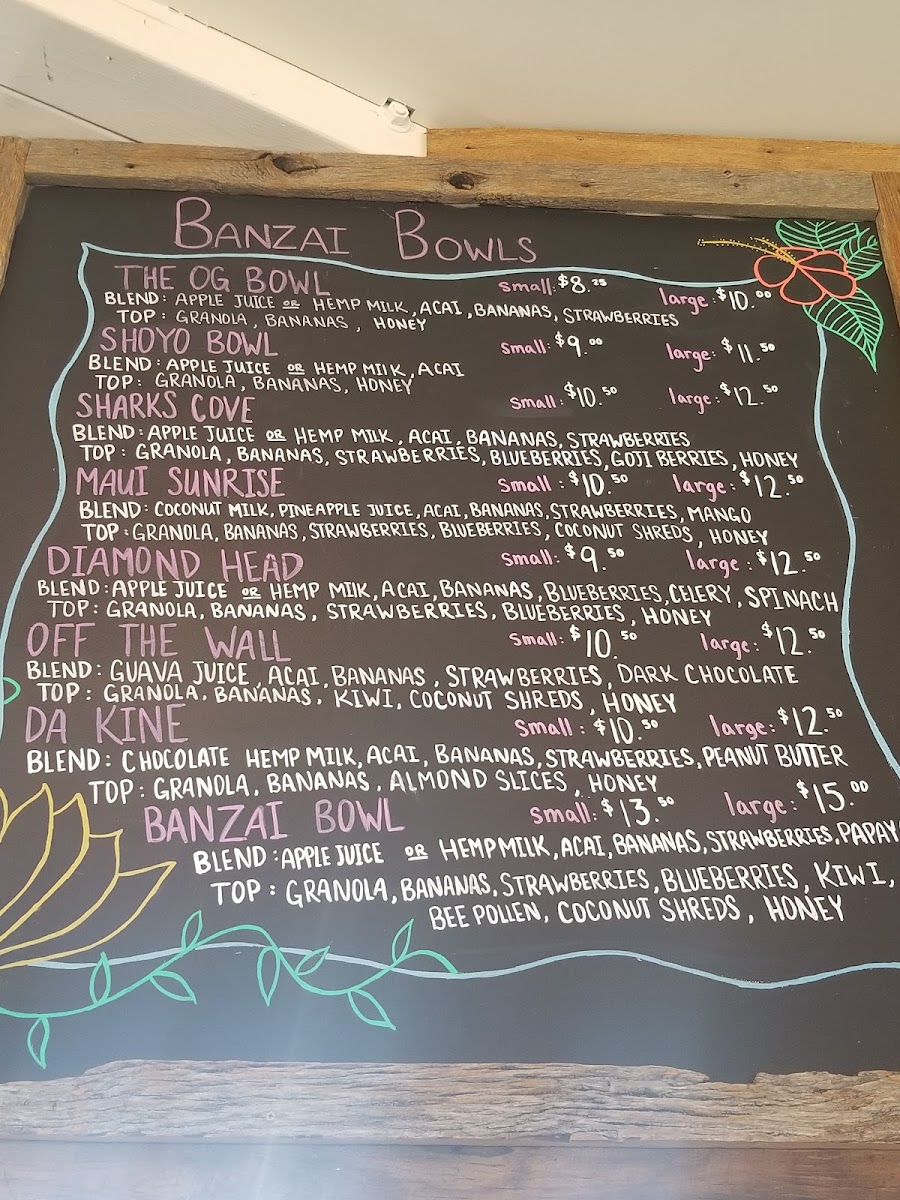 BANZAI BOWLS
THE OG BOWL small: $8.25 large: $10.00
BLEND: APPLE JUICE OR HEMP MILK, ACAI, BANANAS, STRAWBERRIES
TOP: GRANOLA, BANANAS, HONEY
SHOYO BOWL small: $9.00 large: $11.50
BLEND: APPLE JUICE OR HEMP MILK, ACAI
TOP: GRANOLA, BANANAS, HONEY
SHARKS COVE small: $10.50 large: $12.50
BLEND: APPLE JUICE OR HEMP MILK, ACAI, BANANAS, STRAWBERRIES
TOP: GRANOLA, BANANAS, STRAWBERRIES, BLUEBERRIES, GOJI BERRIES, HONEY
MAUI SUNRISE small: $10.50 large: $12.50
BLEND: COCONUT MILK, PINEAPPLE JUICE, ACAI, BANANAS, STRAWBERRIES, MANGO
TOP: GRANOLA, BANANAS, STRAWBERRIES, BLUEBERRIES, COCONUT SHREDS, HONEY
DIAMOND HEAD small: $9.50 large: $12.50
BLEND: APPLE JUICE OR HEMP MILK, ACAI, BANANAS, BLUEBERRIES, CELERY, SPINACH
TOP: GRANOLA, BANANAS, STRAWBERRIES, BLUEBERRIES, HONEY
OFF THE WALL small: $10.50 large: $12.50
BLEND: GUAVA JUICE, ACAI, BANANAS, STRAWBERRIES, DARK CHOCOLATE
TOP: GRANOLA, BANANAS, KIWI, COCONUT SHREDS, HONEY
DA KINE small: $10.50 large: $12.50
BLEND: CHOCOLATE HEMP MILK, ACAI, BANANAS, STRAWBERRIES, PEANUT BUTTER
TOP: GRANOLA, BANANAS, ALMOND SLICES, HONEY
BANZAI BOWL small: $13.50 large: $15.00
BLEND: APPLE JUICE OR HEMP MILK, ACAI, BANANAS, STRAWBERRIES, PAPAY
TOP: GRANOLA, BANANAS, STRAWBERRIES, BLUEBERRIES, KIWI,
BEE POLLEN, COCONUT SHREDS, HONEY